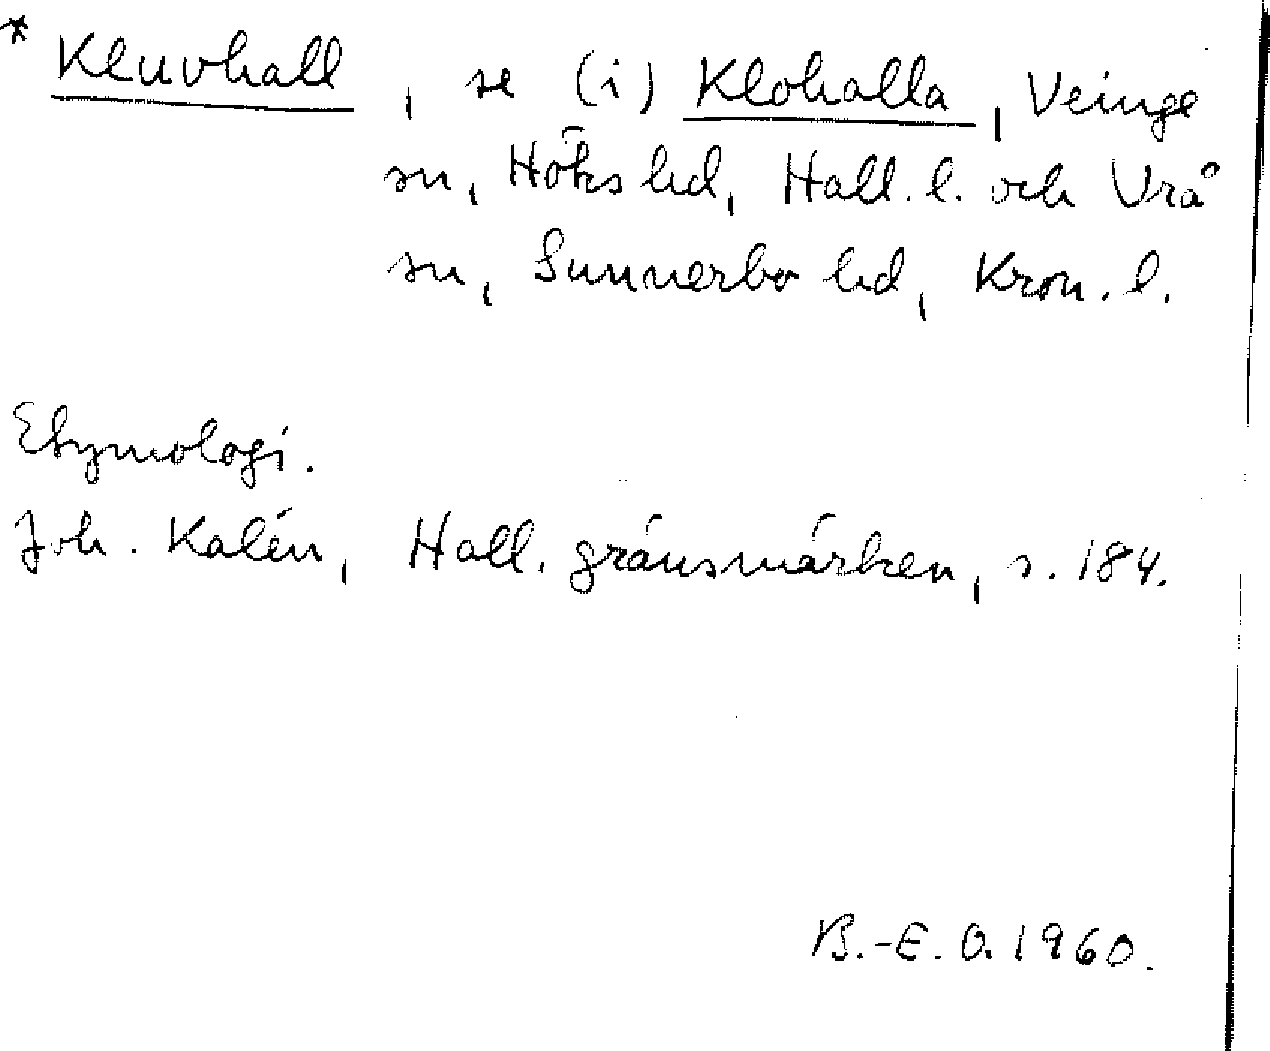 * Kluvhall, se (i) Klohalla, Veinge
sn, Höks hd, Hall. l. och Vrå
sn, Sunnerbo hd, Kron. l.
Etymologi.
Joh. Kalén, Hall. gränsmärken, s. 184.
B.-E. O. 1960.